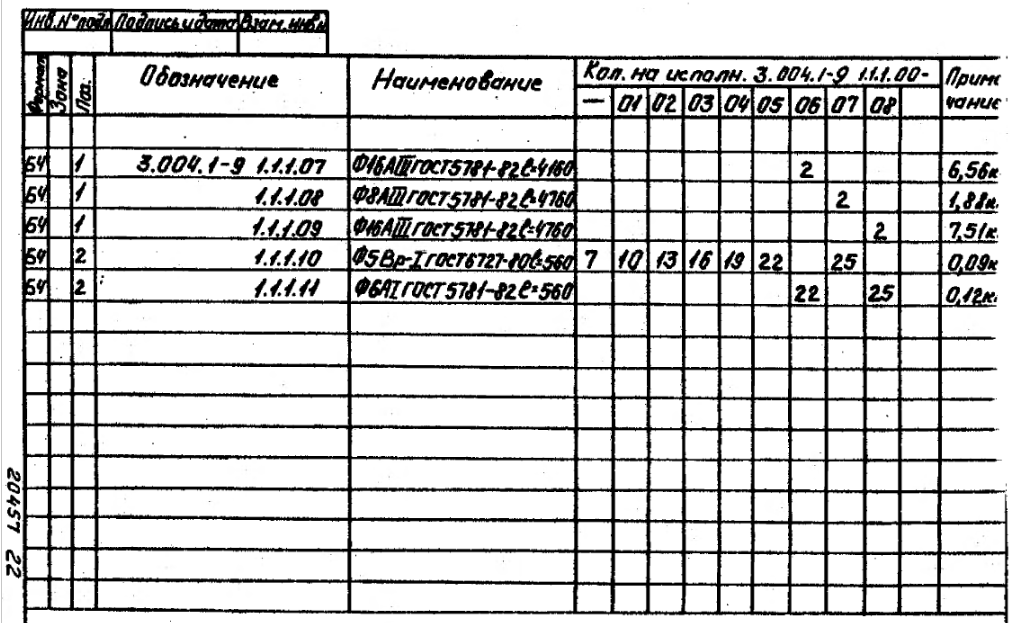 Инв.№ подл Подпись и дата Взам. инв.№
Формат Зона Поз. Обозначение Наименование Кол. на исполн. 3.004.1-9 1.1.1.00- Приме
чание
— 01 02 03 04 05 06 07 08
Б4 1 3.004.1-9 1.1.1.07 Ф16АIII ГОСТ 5781-82 ℓ=4160 2 6,56к
Б4 1 1.1.1.08 Ф8АIII ГОСТ 5781-82 ℓ=4760 2 1,88к.
Б4 1 1.1.1.09 Ф16АIII ГОСТ 5781-82 ℓ=4760 2 7,51к.
Б4 2 1.1.1.10 Ф5Вр-I ГОСТ 6727-80 ℓ=560 7 10 13 16 19 22 25 0,09к
Б4 2 1.1.1.11 Ф6АI ГОСТ 5781-82 ℓ=560 22 25 0,12к.
20457 22